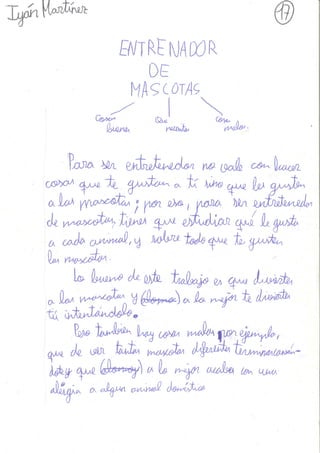 Iyán Martínez
17
ENTRENADOR
DE
MASCOTAS
Cosas buenas
Que necesita
Cosas malas.
Para ser entretenedor no vale con hacer
cosas que te gustan a tí sino que les gusten
a las mascotas; por eso, para ser entretenedor
de mascotas, tienes que estudiar qué le gusta
a cada animal, y sobre todo que te gusten
las mascotas.
Lo bueno de este trabajo es que diviertes
a las mascotas y a lo mejor te diviertes
tú intentándolo.
Pero también hay cosas malas por ejemplo,
que de ver tantas mascotas diferentes terminas cansán-
dote y que a lo mejor acabas con una
alergia a algun animal doméstico.